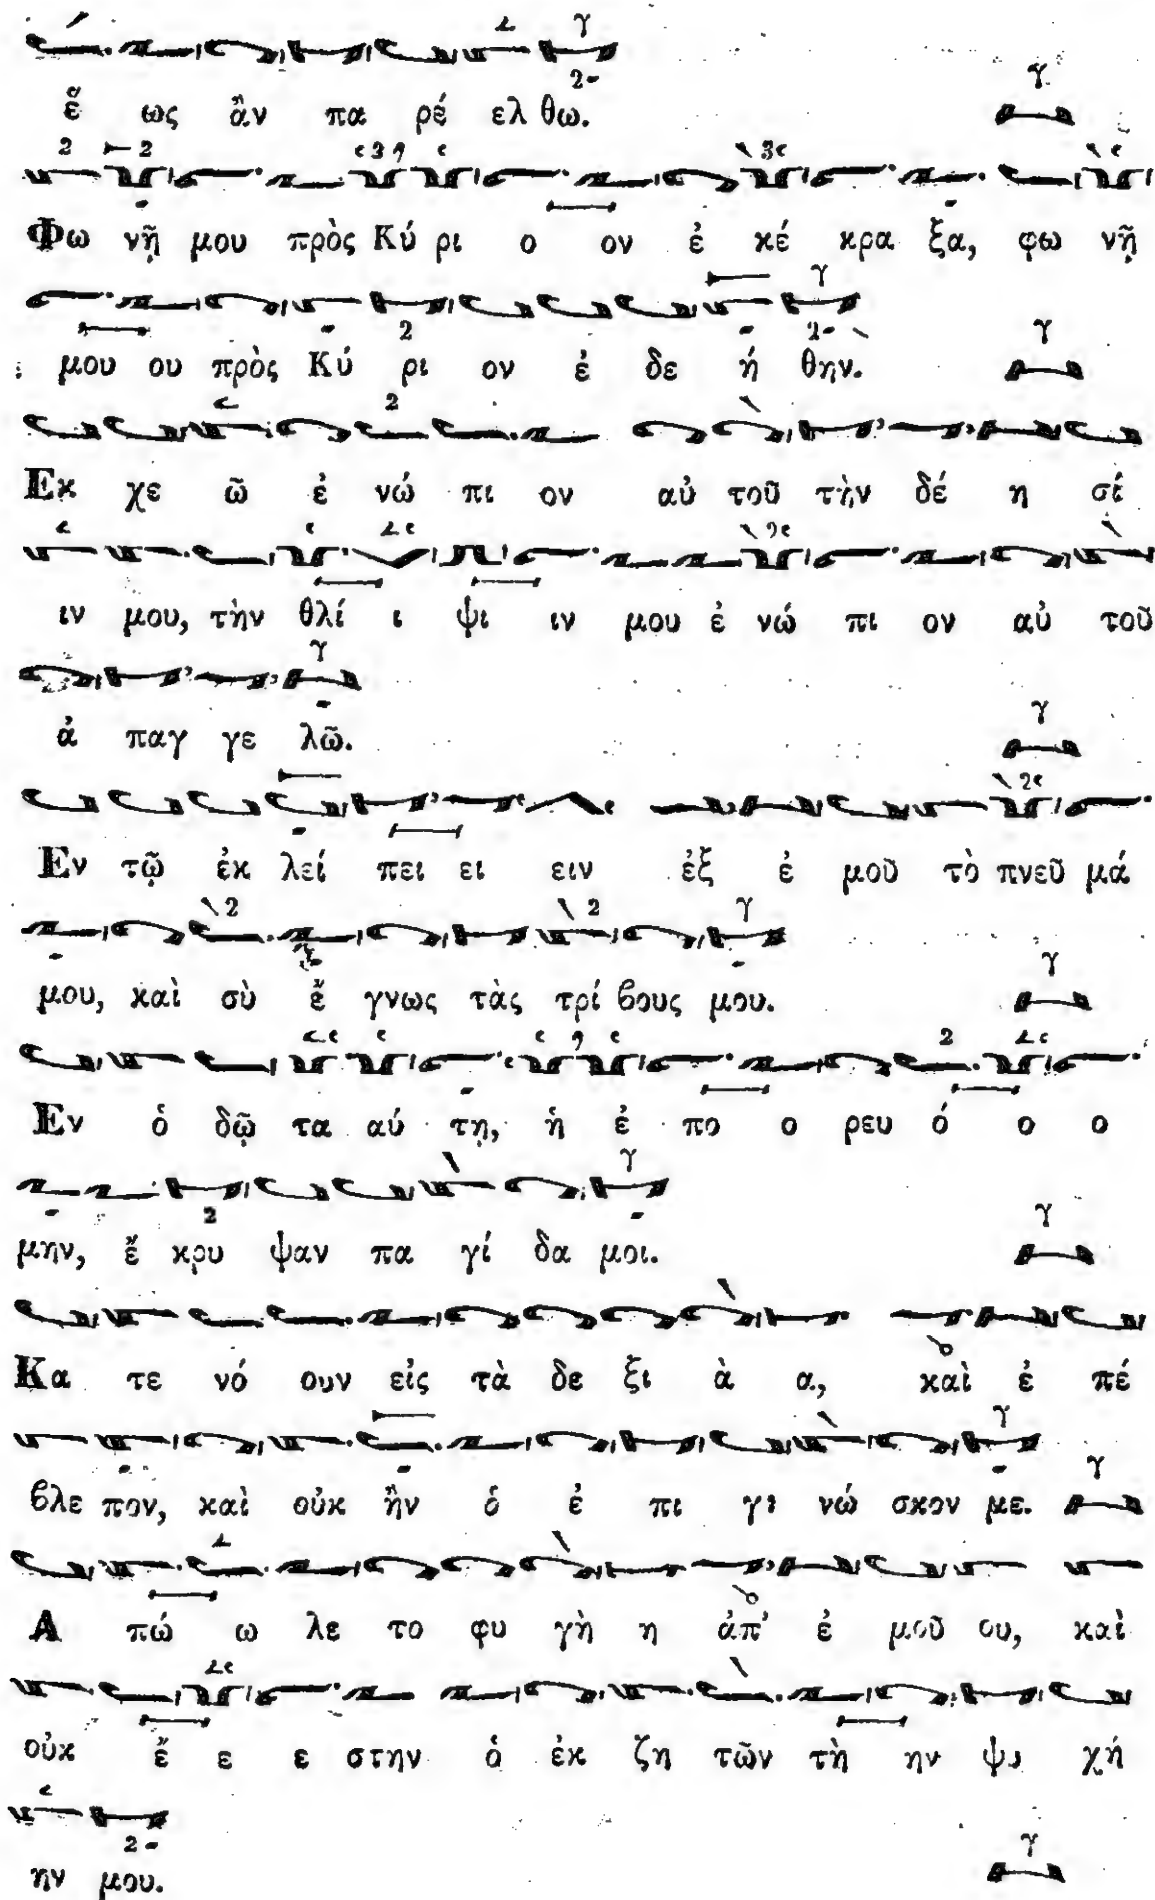 ἕ ως ἂν πα ρέ ελ θω.
Φω νῇ μου πρὸς Κύ ρι ο ον ἐ κέ κρα ξα, φω νῇ
μου ου πρὸς Κύ ρι ον ἐ δε ή θην.
Εκ χε ῶ ἐ νώ πι ον αὐ τοῦ τὴν δέ η σί
ιν μου, τὴν θλί ι ψι ιν μου ἐ νώ πι ον αὐ τοῦ
ἀ παγ γε λῶ.
Εν τῷ ἐκ λεί πει ει ειν ἐξ ἐ μοῦ τὸ πνεῦ μά
μου, καὶ σὺ ἔ γνως τὰς τρί βους μου.
Εν ὁ δῷ τα αύ τῃ, ἡ ἐ πο ο ρευ ό ο ο
μην, ἔ κρυ ψαν πα γί δα μοι.
Κα τε νό ουν εἰς τὰ δε ξι ὰ α, καὶ ἐ πέ
βλε πον, καὶ οὐκ ἦν ὁ ἐ πι γι νώ σκον με.
Α πώ ω λε το φυ γὴ η ἀπ' ἐ μοῦ ου, καὶ
οὐκ ἔ ε ε στην ὁ ἐκ ζη τῶν τὴ ην ψυ χή
ην μου.